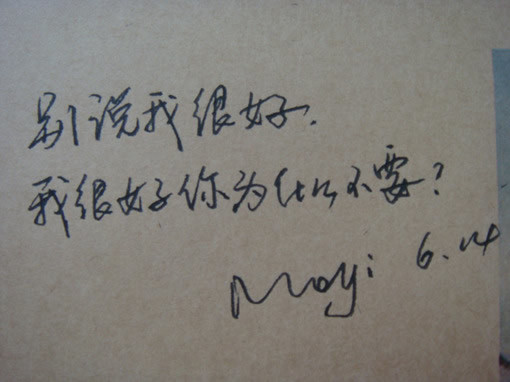 别说我很好.
我很好你为什么不要?
Moyi 6.14